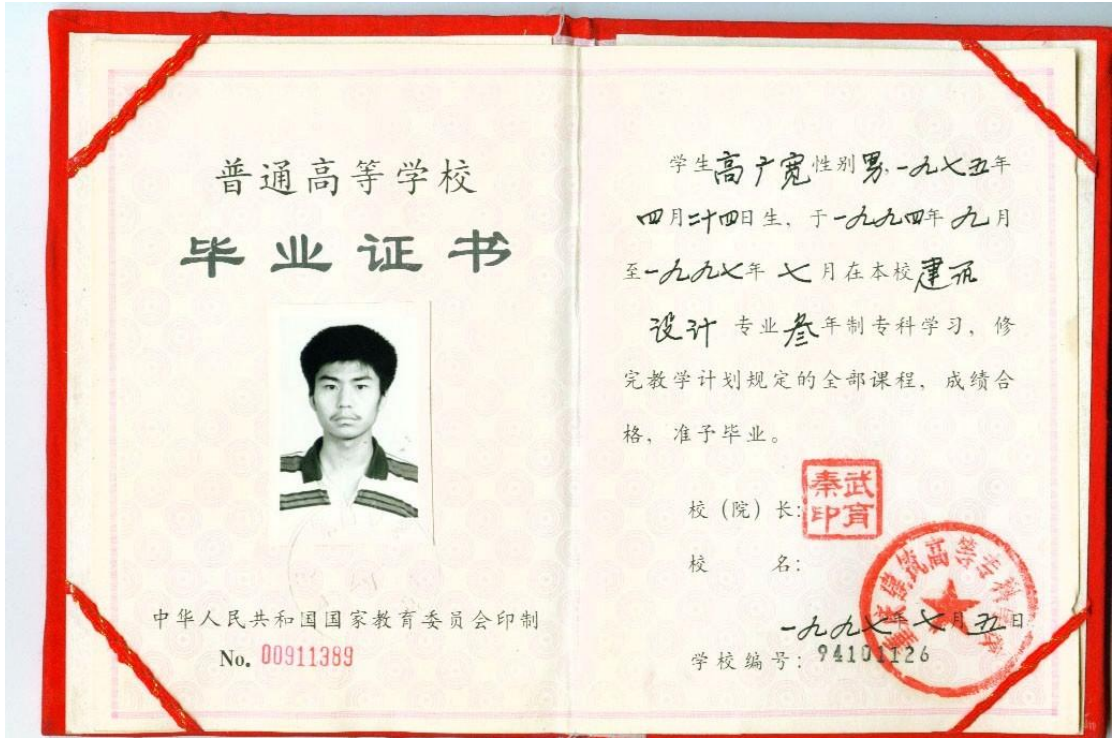 普通高等学校
毕业证书
中华人民共和国国家教育委员会印制
No. 00911389
学生高广宽性别男,一九七五年
四月二十四日生,于一九九四年九月
至一九九七年七月在本校建筑
设计专业叁年制专科学习,修
完教学计划规定的全部课程,成绩合
格,准予毕业。
校(院)长:
武育
秦印
校 名:
建筑高等专科学校
一九九七年七月五日
学校编号:94101126